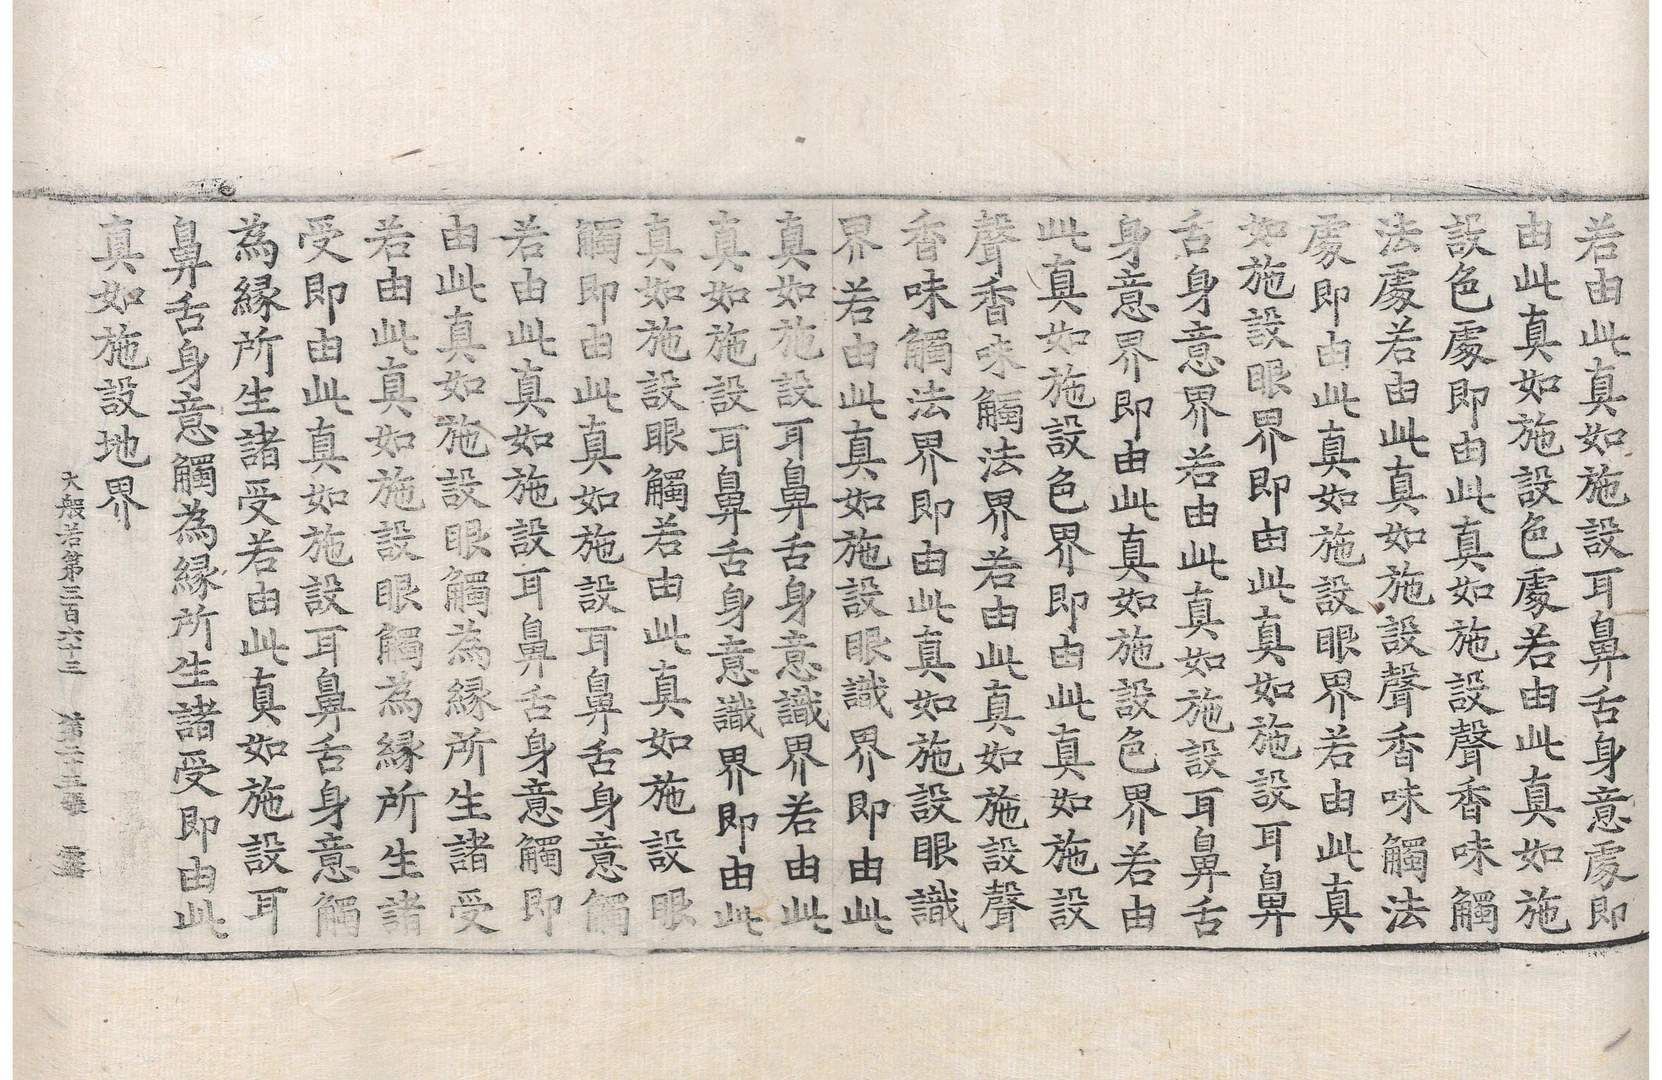 若由此真如施設耳鼻舌身意處即
由此真如施設色處若由此真如施
設色處即由此真如施設聲香味觸
法處若由此真如施設聲香味觸法
處即由此真如施設眼界若由此真
如施設眼界即由此真如施設耳鼻
舌身意界若由此真如施設耳鼻舌
身意界即由此真如施設色界若由
此真如施設色界即由此真如施設
聲香味觸法界若由此真如施設聲
香味觸法界即由此真如施設眼識
界若由此真如施設眼識界即由此
真如施設耳鼻舌身意識界若由此
真如施設耳鼻舌身意識界即由此
真如施設眼觸若由此真如施設眼
觸即由此真如施設耳鼻舌身意觸
若由此真如施設耳鼻舌身意觸即
由此真如施設眼觸為緣所生諸受
若由此真如施設眼觸為緣所生諸
受即由此真如施設耳鼻舌身意觸
為緣所生諸受若由此真如施設耳
鼻舌身意觸為緣所生諸受即由此
真如施設地界
大般若第三百六十三 第二十三張